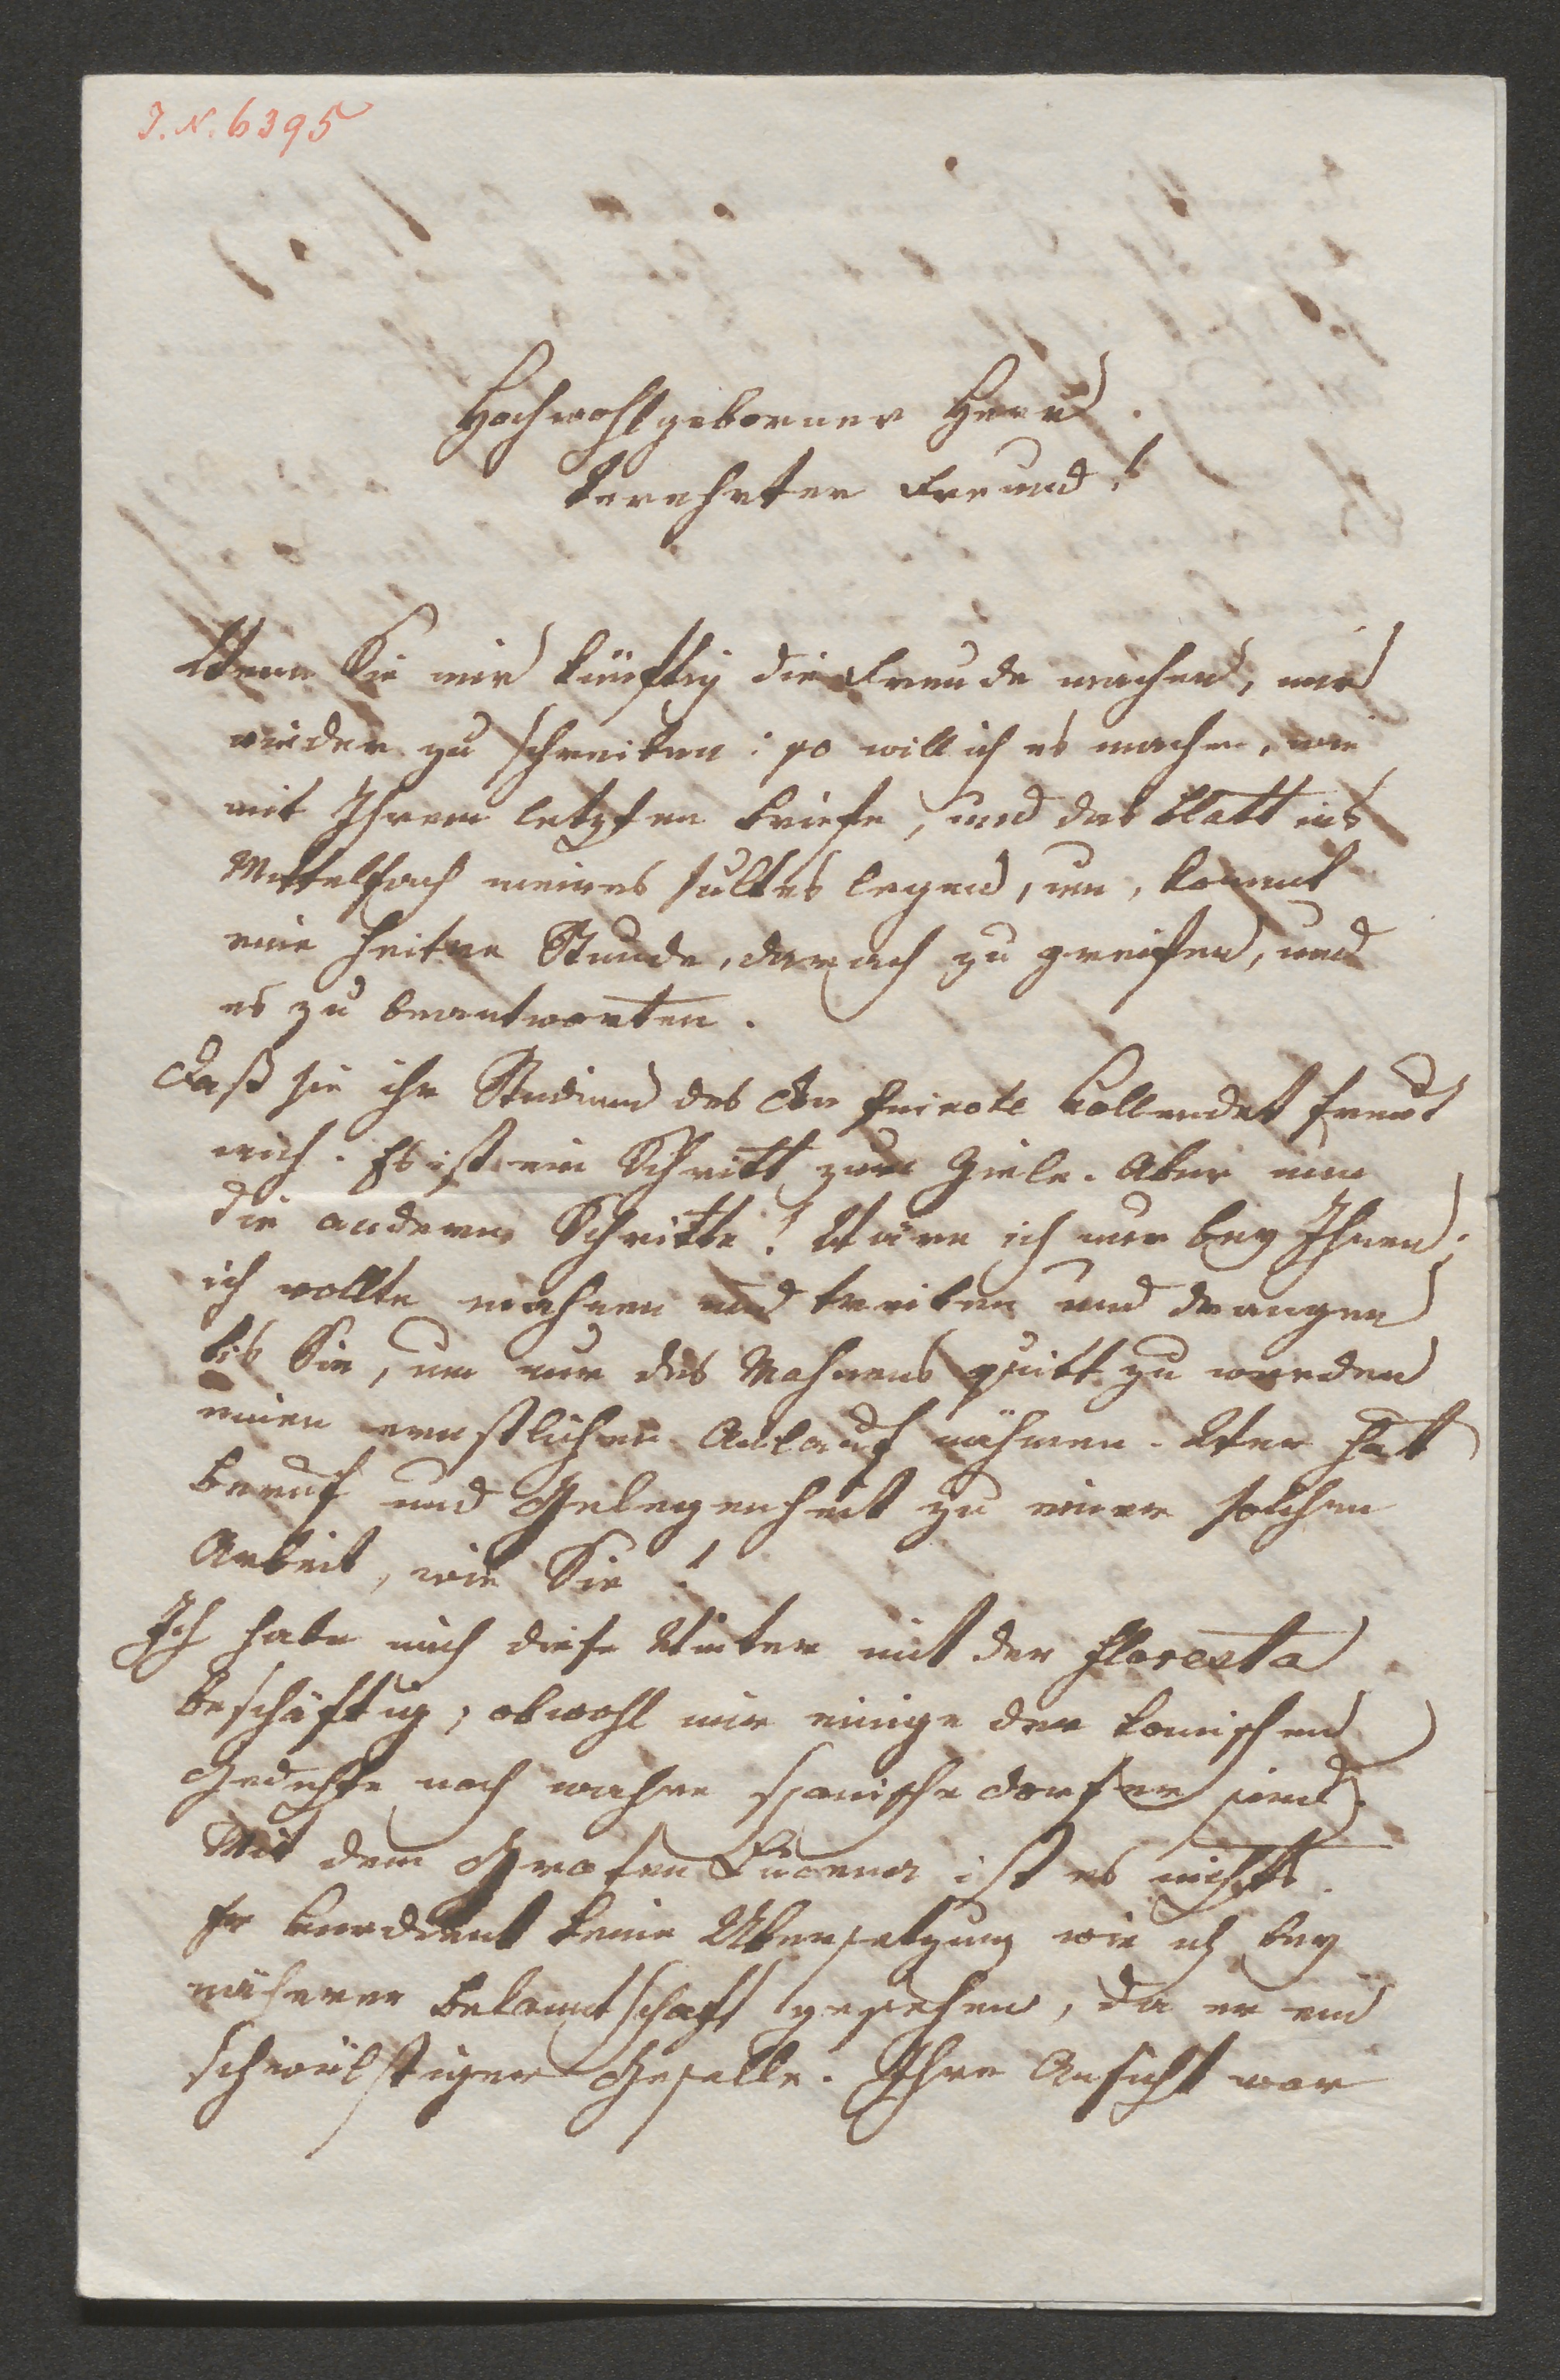 I. N. 6395
Hochwohlgeborner Herr
Verehrter Freund!
Wenn Sie mir künftig die Freude machen, mir
wieder zu schreiben: so will ich es machen, wie
mit Ihrem letzten Briefe, und das Blatt ins
Mittelfach meines Pultes legen, um, kommt
eine heitre Stunde, darnach zu greifen, und
es zu beantworten.
Daß sie ihr Studium des Don Quixote vollendet freut
mich. Es ist ein Schritt zum Ziele. Aber nun
die anderen Schritte! Wäre ich nur bey Ihnen;
ich wollte mahnen und treiben und drangen
bis Sie, um nur des Mahnens quitt zu werden
einen ernstlichen Anlauf nähmen. Wer hat
Beruf und Gelegenheit zu einer solchen
Arbeit, wie Sie!
Ich habe mich diese Winter mit der Floresta
beschäftig; obwohl mir einige der komischen
Gedichte noch wahre spanische Dorfer sind.
Mit dem Grafen Lucanor ist es nichts.
Er verdient keine Übersetzung wie ich bey
näherer Bekanntschaft gesehen, da er ein
schwülstiger Geselle. Ihre Ansicht war